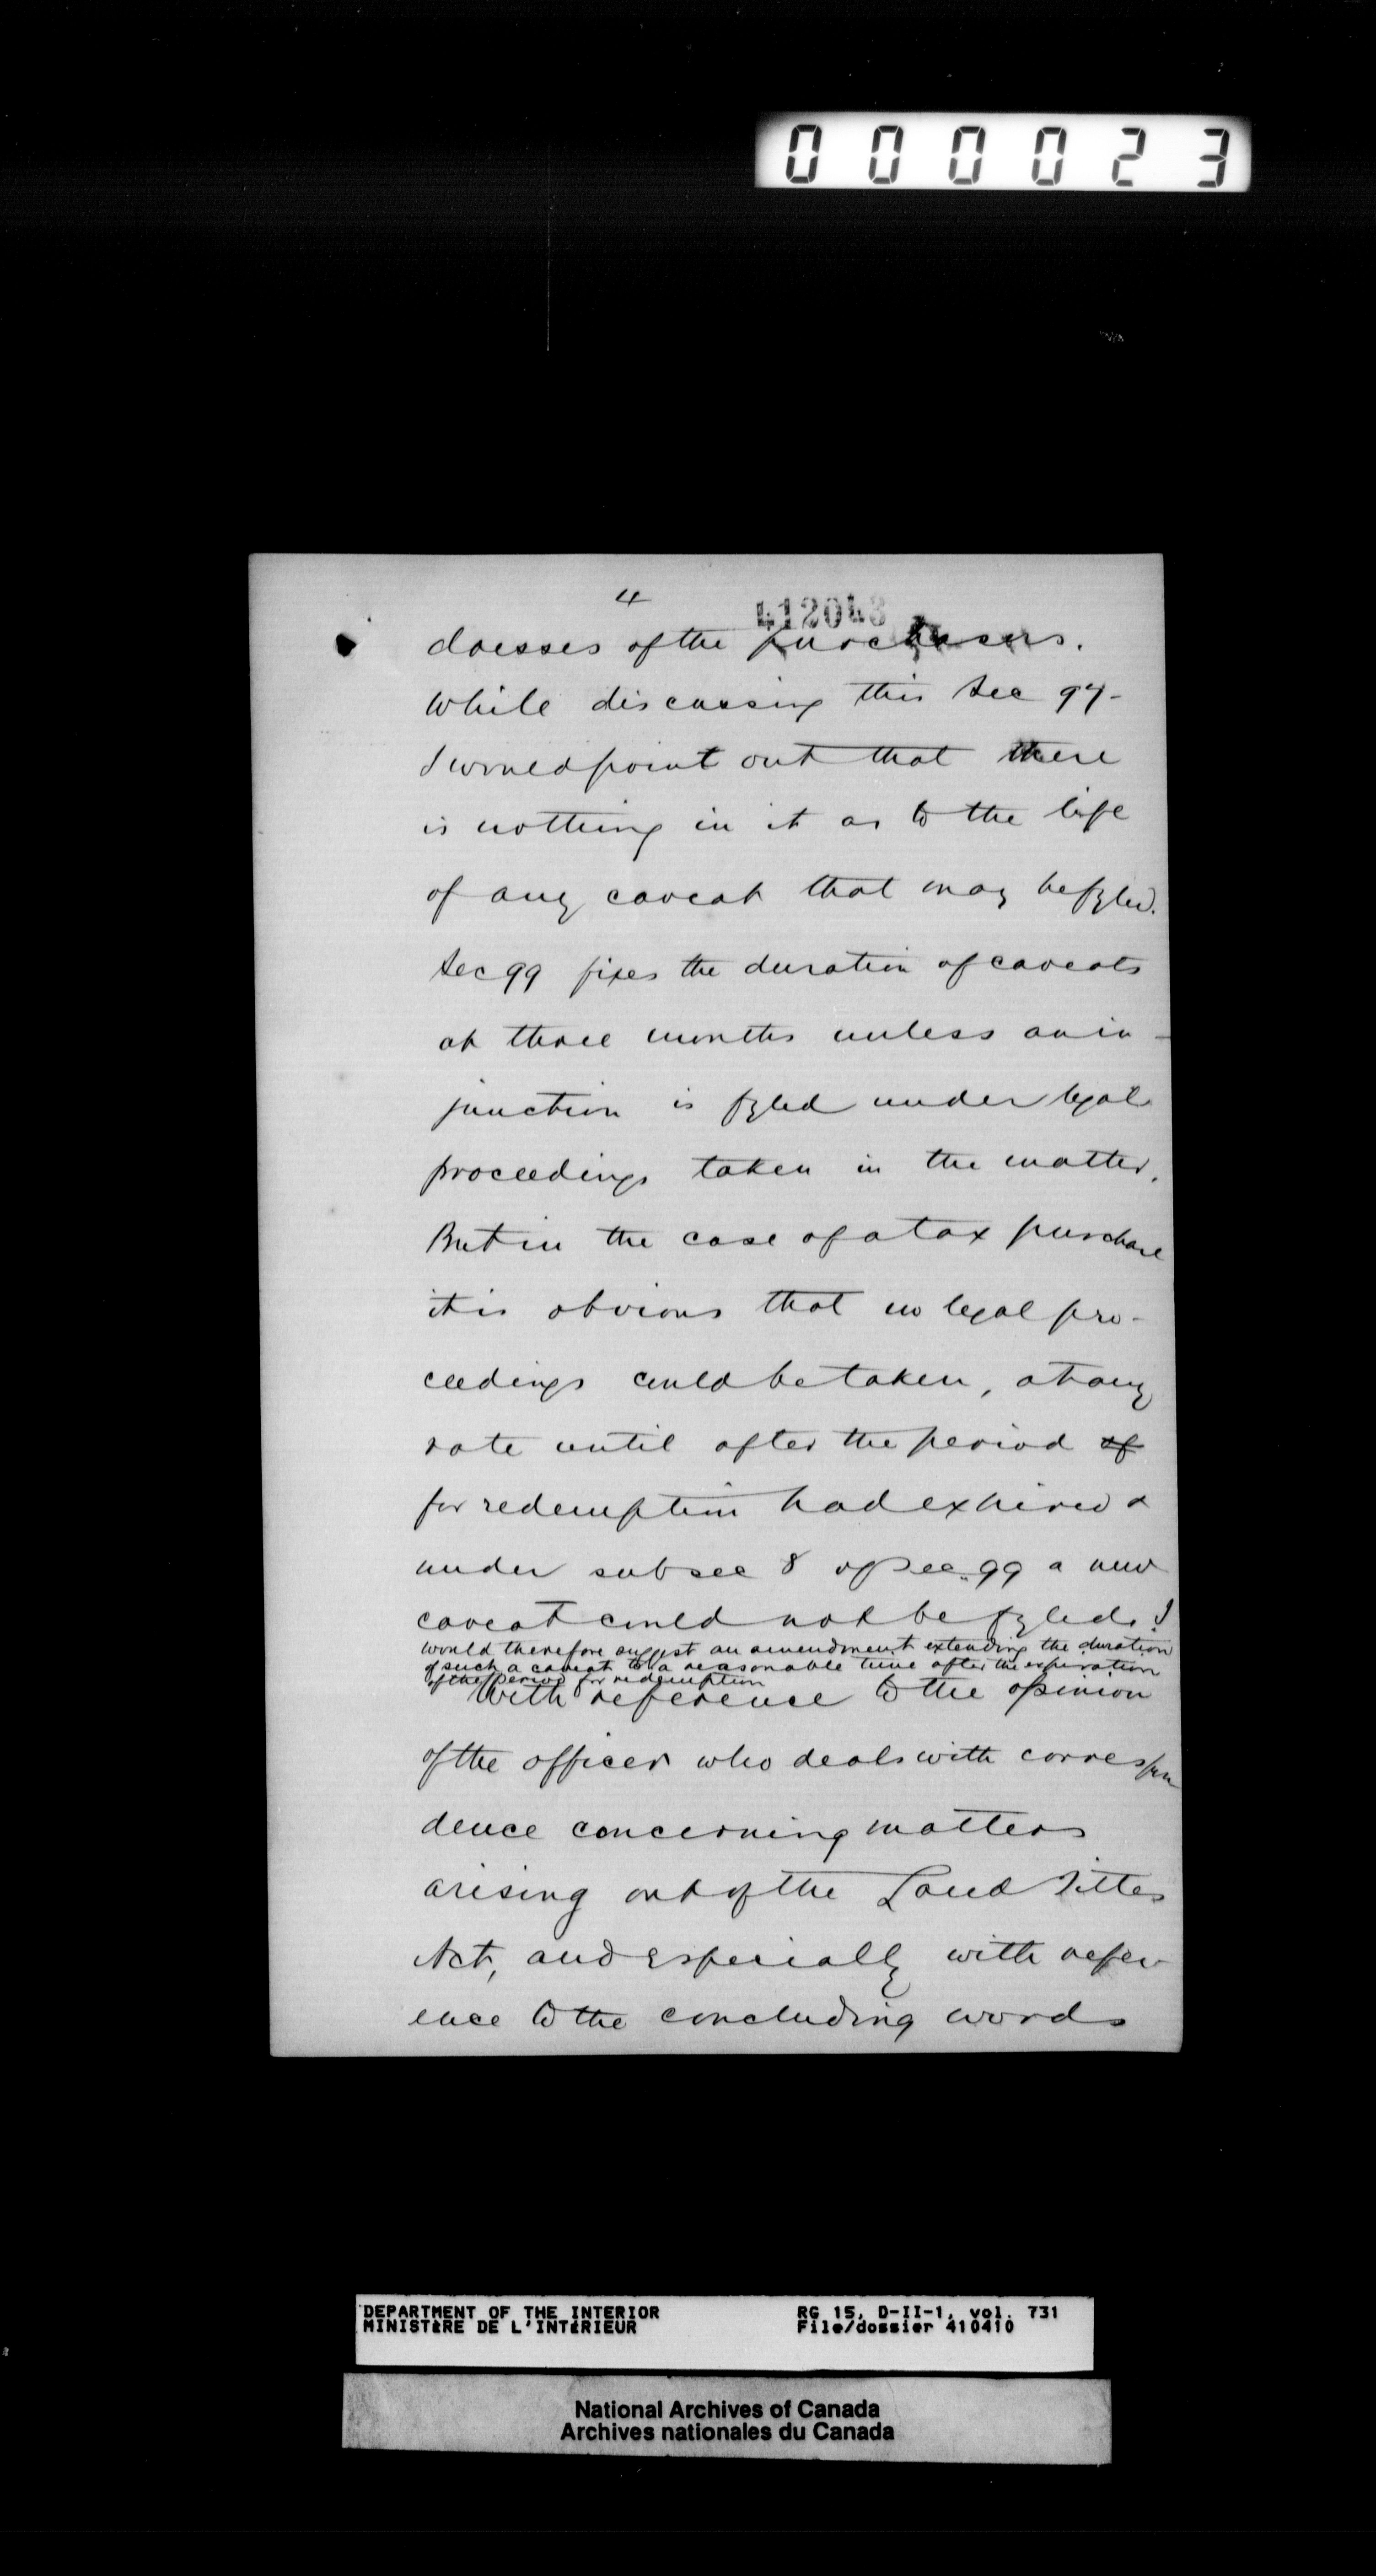 000023
4
412043
dresses of the purchasers.
While discussing this Sec 97-
I would point out that there
is nothing in it as to the life
of any caveat that may be fyled.
Sec 99 fixes the duration of caveats
at three months unless an in-
junction is fyled under legal
proceedings taken in the matter.
But in the case of a tax purchase
it is obvious that no legal pro-
ceedings could be taken, at any
rate until after the period of
for redemption had expired &
under subsec 8 of Sec. 99 a new
caveat could not be fyled. I
would therefore suggest an amendment extending the duration
of such a caveat to a reasonable time after the expiration
of the period for redemption
With reference to the opinion
of the officer who deals with correspon
dence concerning matters
arising out of the Land Titles
Act, and especially with refer-
ence to the concluding words
DEPARTMENT OF THE INTERIOR RG 15, D-II-1, vol. 731
MINISTÈRE DE L'INTÉRIEUR File/dossier 410410
National Archives of Canada
Archives nationales du Canada